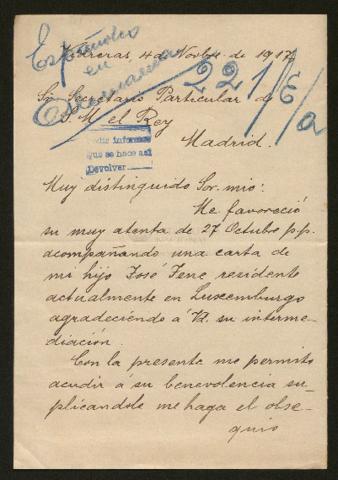 Españoles
en
Alemania
221/E/a
Porreras, 4 de Novbre de 1917
Sor Secretario Particular de
S. M. el Rey
Madrid.
Pedir informes
que se hace así
Devolver
Muy distinguido Sor. mio:
Me favoreció
su muy atenta de 27 Octubre p.p.
acompañando una carta de
mi hijo José residente
actualmente en Luxemburgo
agradeciendo á Vd. su interme-
diación.
Con la presente me permito
acudir á su benevolencia su-
plicandole me haga el obse-
quio